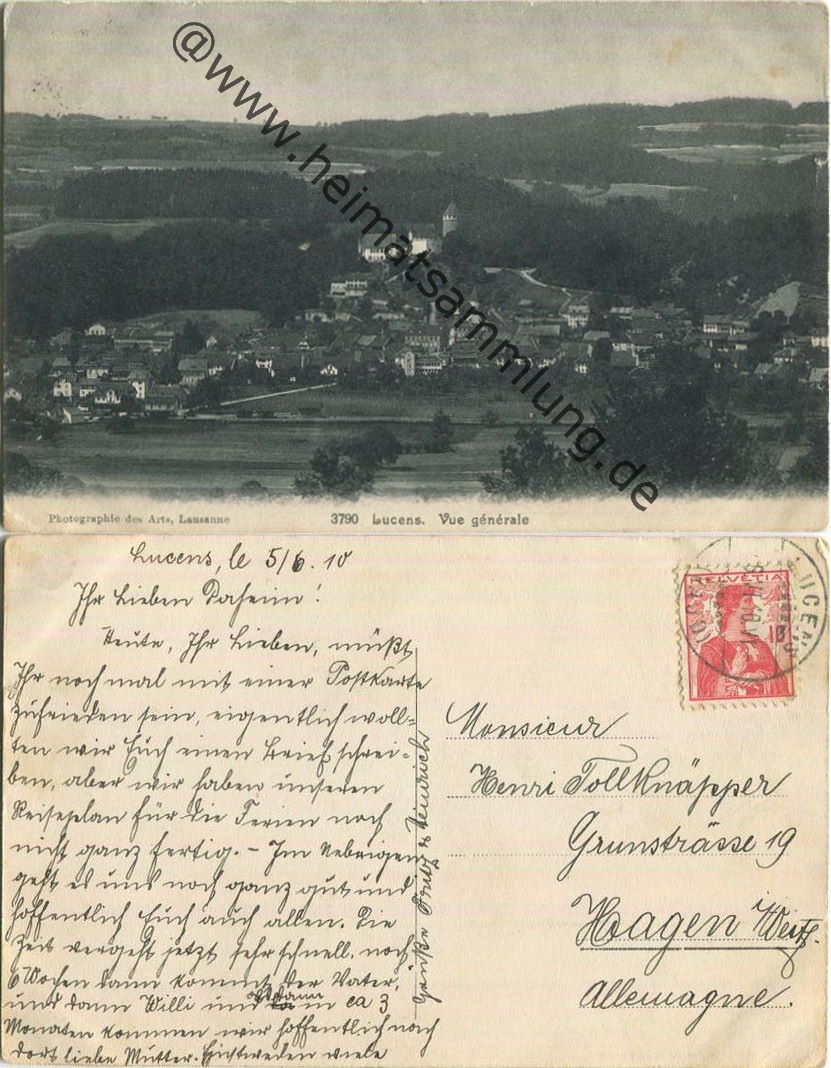 @www.heimatsammlung.de
Photographie des Arts, Lausanne
3790 Lucens. Vue générale
Lucens, le 5/6. 10
Ihr Lieben Daheim!
Heute, Ihr Lieben, müßt
Ihr noch mal mit einer Postkarte
zufrieden sein, eigentlich woll=
ten wir Euch einen Brief schrei-
ben, aber wir haben unseren
Reiseplan für die Ferien noch
nicht ganz fertig. - Im Uebrigen
geht es uns noch ganz gut und
hoffentlich Euch auch allen. Die
Zeit vergeht jetzt sehr schnell, noch
6 Wochen dann kommt der Vater,
und dann Willi und alsdann in ca 3
Monaten kommen wir hoffentlich nach
dort liebe Mutter. Einstweilen viele
Grüße Fritz & Heinrich
HELVETIA
10
LUCENS
Monsieur
Henri Tollknäpper
Grunsträsse 19
Hagen i/Westf.
Allemagne.